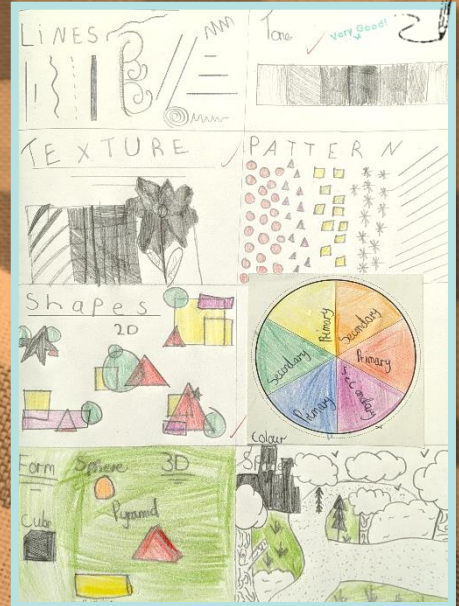 LINES
Tone
Very Good!
TEXTURE
PATTERN
Shapes
2D
Primary
Secondary
Primary
Secondary
Primary
Secondary
Colour
Form
Sphere
3D
Cube
Pyramid